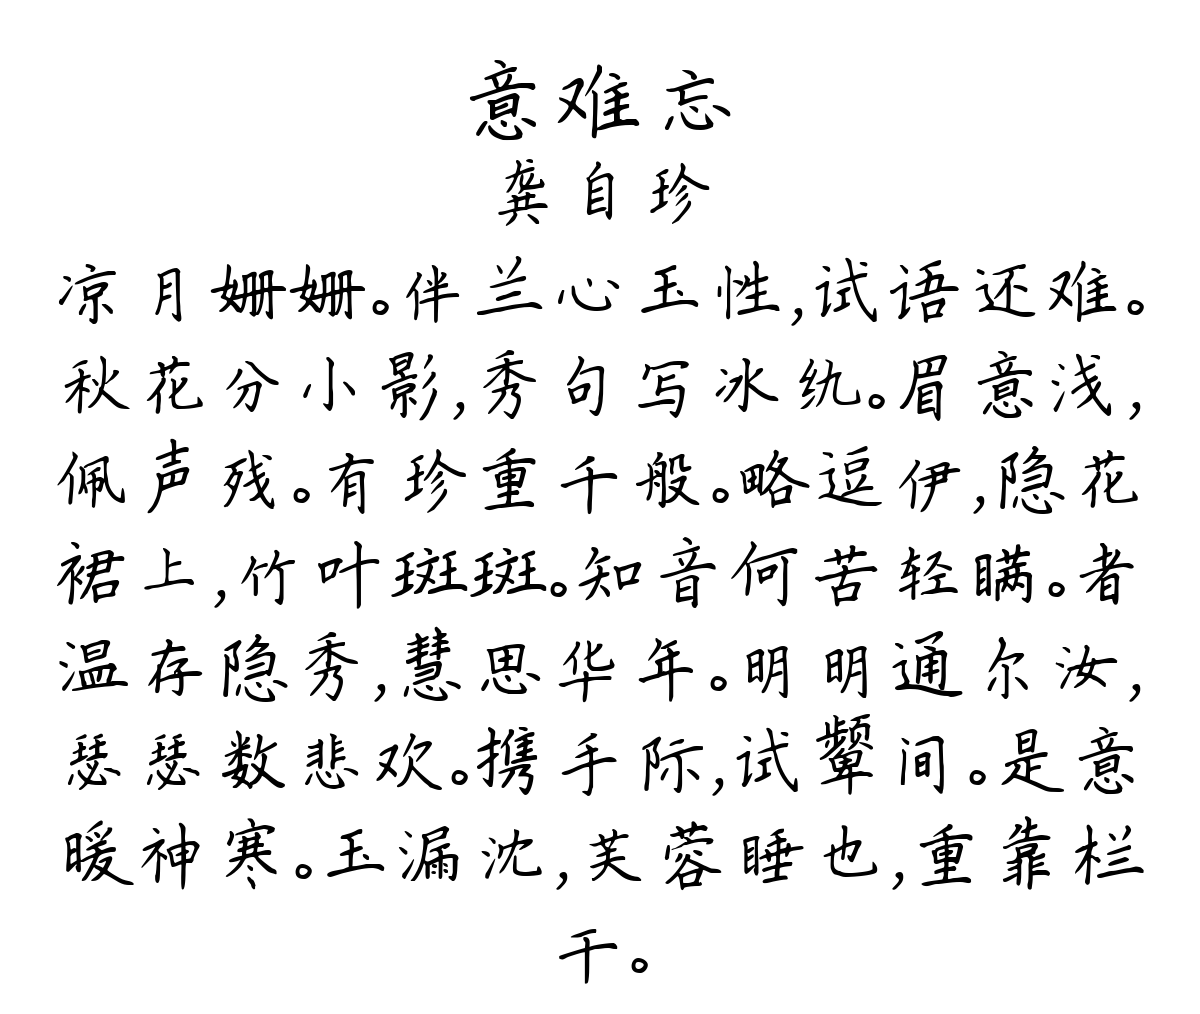 意难忘
龚自珍
凉月姗姗。伴兰心玉性,试语还难。
秋花分小影,秀句写冰纨。眉意浅,
佩声残。有珍重千般。略逗伊,隐花
裙上,竹叶斑斑。知音何苦轻瞒。者
温存隐秀,慧思华年。明明通尔汝,
瑟瑟数悲欢。携手际,试颦间。是意
暖神寒。玉漏沈,芙蓉睡也,重靠栏
干。